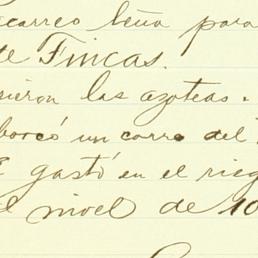 acarreo leña para
te FINCAS.
sieron las azoteas.
barcó un carro del
E gastó en el rieg
el nivel de 10